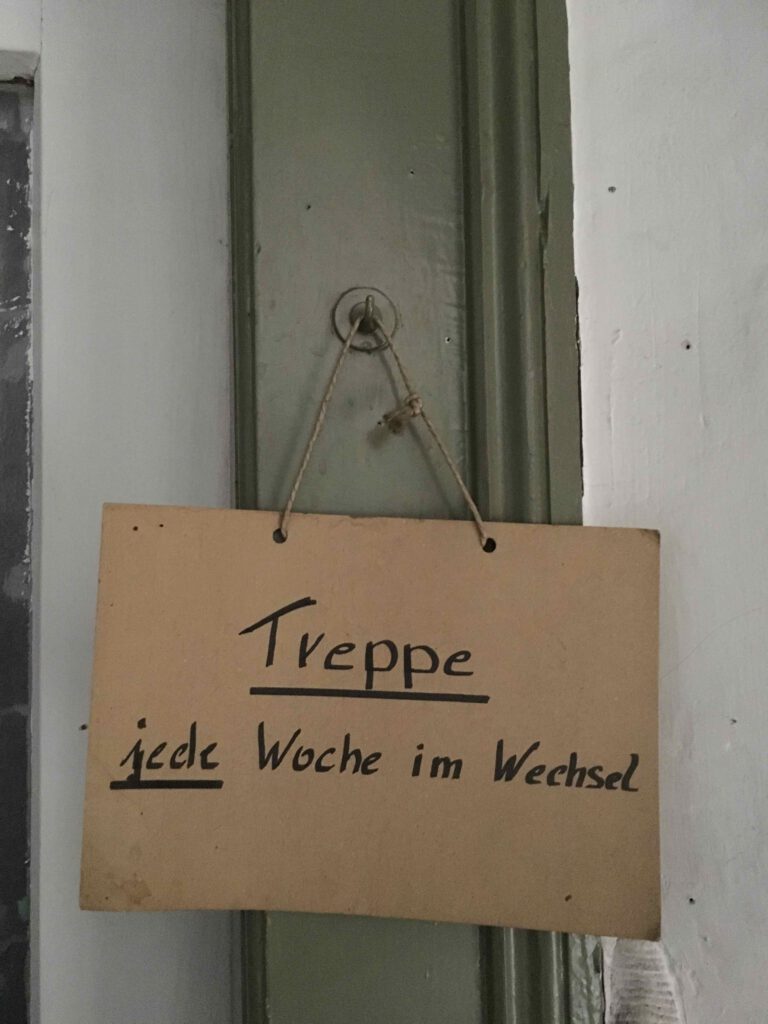 Treppe
jede Woche im Wechsel